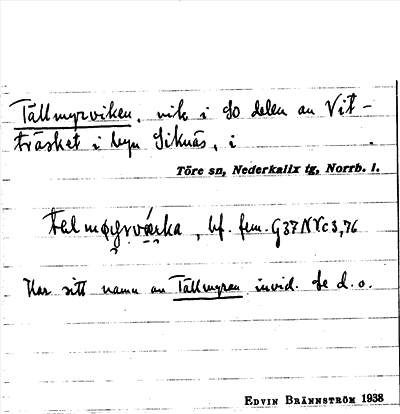 Tällmyrviken, vik i SO delen av Vit-
träsket i byn Siknäs, i
Töre sn, Nederkalix tg, Norrb. l.
bf. fem. G37NYc3,76
Har sitt namn av Tällmyran invid. Se d. o.
EDVIN BRÄNNSTRÖM 1938